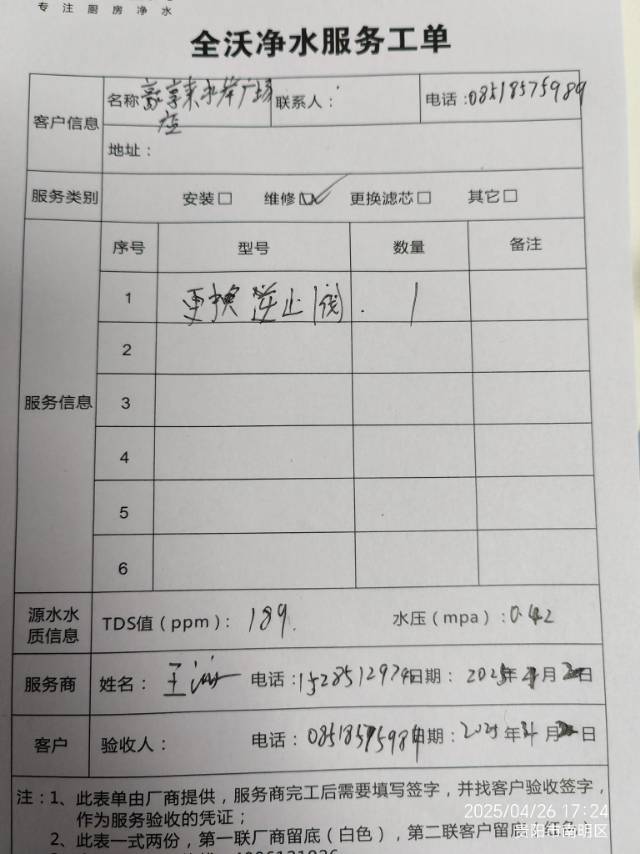 专注厨房净水
全沃净水服务工单
客户信息
名称 豪享来水岸广场店
联系人：
电话：08518575989
地址：
服务类别
安装□ 维修☑ 更换滤芯□ 其它□
服务信息
序号 型号 数量 备注
1 更换逆止阀. 1
2
3
4
5
6
源水水质信息
TDS值（ppm）：189. 水压（mpa）：0.42
服务商
姓名：王 电话：日期：2025年 月 日
客户
验收人： 电话：日期：2025年 月 日
注：1、此表单由厂商提供，服务商完工后需要填写签字，并找客户验收签字，
作为服务验收的凭证；
2、此表一式两份，第一联厂商留底（白色），第二联客户留底（红色
2025/04/26 17:24
贵阳市南明区